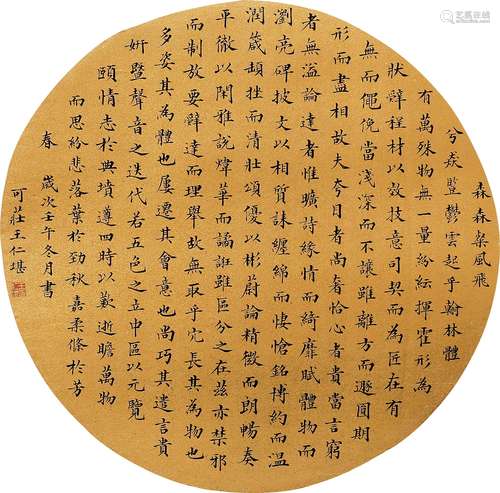 森森粲風飛
兮猋豎鬱雲起乎翰林體
有萬殊物無一量紛紜揮霍形為
狀辭程材以效技意司契而為匠在有
無而僶俛當淺深而不讓雖離方而遯圓期
形而盡相故夫夸目者尚奢恰心者貴當言窮
者無溢論達者惟曠詩緣情而綺靡賦體物而
瀏亮碑披文以相質誄纏綿而悽愴銘博約而溫
潤箴頓挫而清壯頌優以彬蔚論精微而朗暢奏
平徹以閑雅說煒華而譎誑雖區分之在茲亦禁邪
而制放要辭達而理舉故無取乎冗長其為物也
多姿其為體也屢遷其會意也尚巧其遣言貴
妍暨聲音之迭代若五色之立中區以元覽
頤情志於典墳遵四時以歎逝瞻萬物
而思紛悲落葉於勁秋嘉柔條於芳
春 歲次壬午冬月書
可莊王仁堪